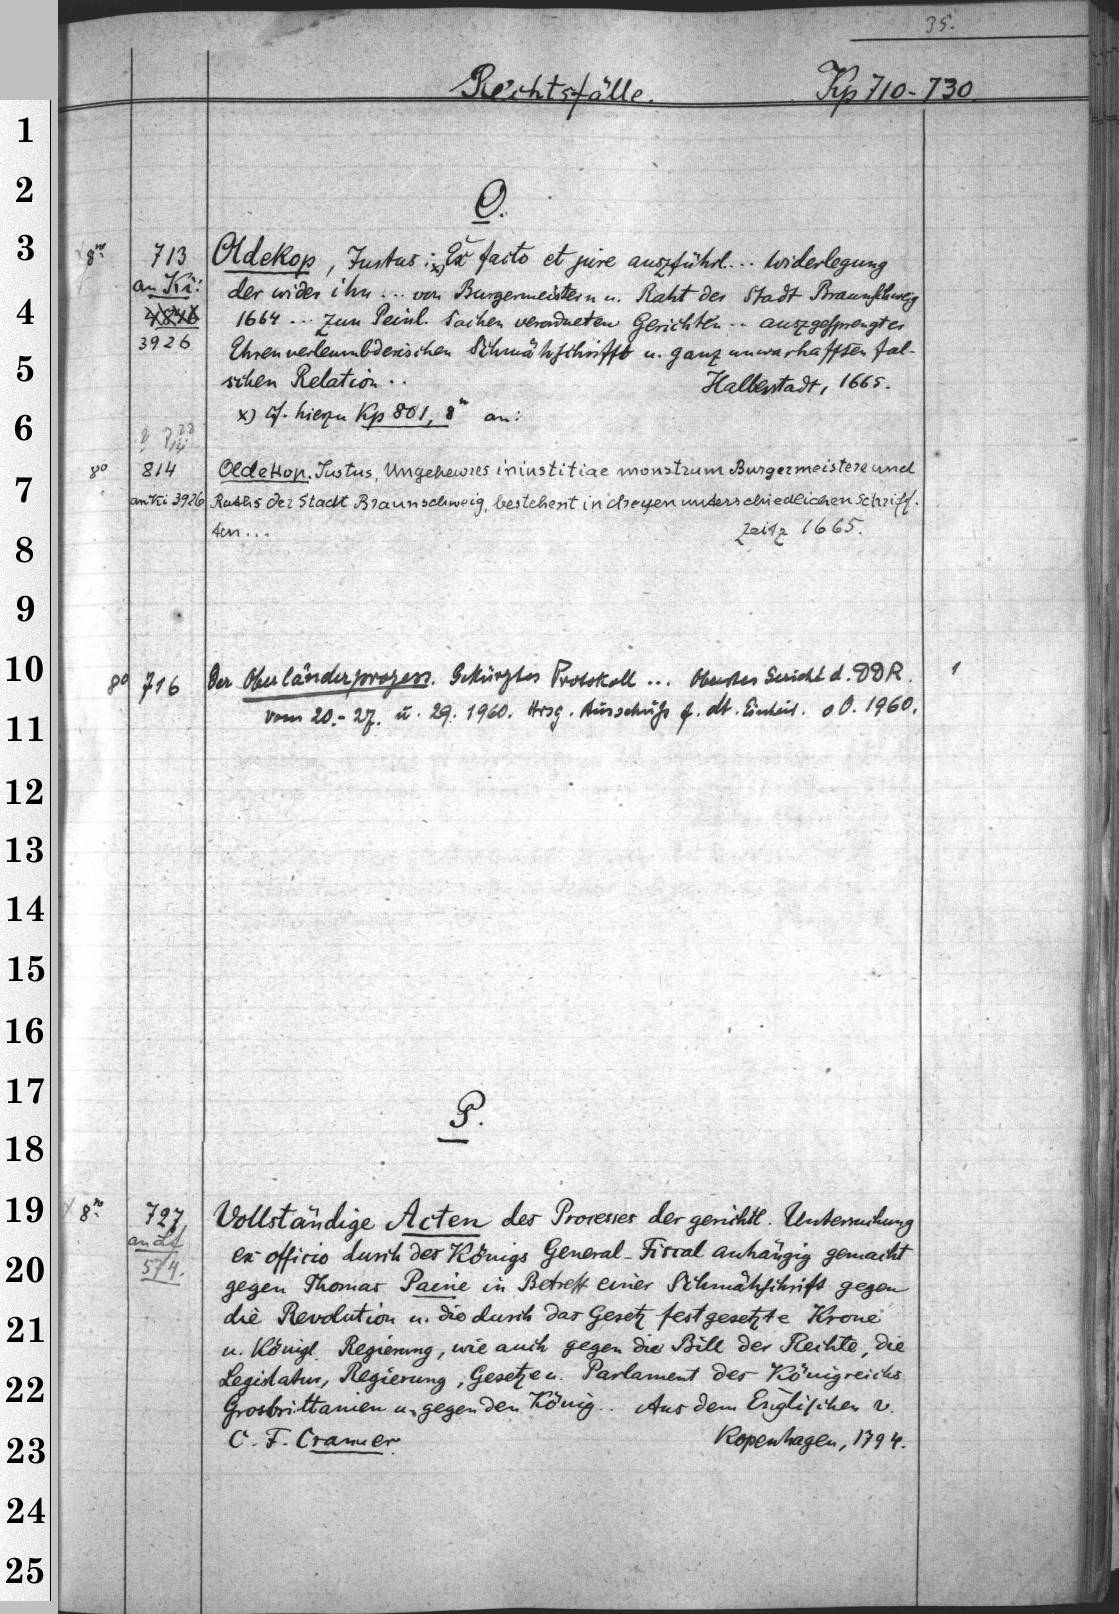 35.
Rechtsfälle. Kp 710-730.
O.
8° 713 Oldekop, Justus: x) Ex facto et jure auszführl... widerlegung
an Ki: der wider ihn ... von Burgermeistern u. Raht der Stadt Braunschweig
4846 1664 ... zun Peinl. Sachen verordneten Gerichten .. auszgesprengter
3926 Ehrenverleumbderischen Schmähschrifft u. ganz unwarhafften fal-
schen Relation .. Halberstadt, 1665.
x) cf. hierzu Kp 801, 8° an:
8° 814 Oldekop, Justus, Ungehewres iniustitiae monstrum Burgermeistere und
an Ki 3926 Raths der Stadt Braunschweig, bestehent in dreyen unterschiedlichen Schriff-
ten ... Zeitz 1665.
8° 716 Der Oberländerprozess. Gekürztes Protokoll ... Oberstes Gericht d. DDR. 1
vom 20.-27. u. 29. 1960. Hrsg. Ausschuß f. dt. Einheit. o O. 1960.
P.
x 8° 727, Vollständige Acten des Processes der gerichtl. Untersuchung
an Lf ex officio durch des Königs General-Fiscal anhängig gemacht
574. gegen Thomas Paine in Betreff einer Schmähschrift gegen
die Revolution u. die durch das Gesetz festgesetzte Krone
u. Königl. Regierung, wie auch gegen die Bill der Rechte, die
Legislatur, Regierung, Gesetze u. Parlament des Königreichs
Grosbrittanien u. gegen den König .. Aus dem Englischen v.
C. F. Cramer. Kopenhagen, 1794.
1
2
3
4
5
6
7
8
9
10
11
12
13
14
15
16
17
18
19
20
21
22
23
24
25